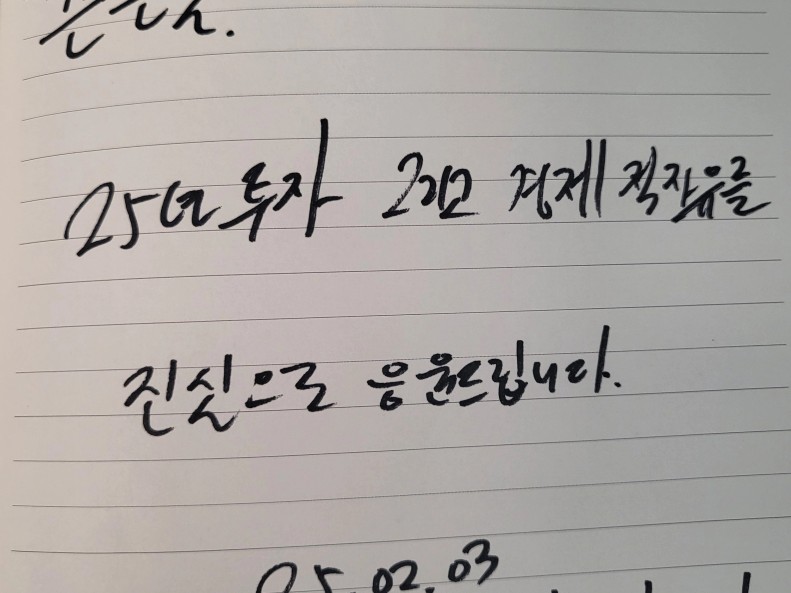 25년 투자 그리고 경제적 자유를
진심으로 응원드립니다.
25.02.03